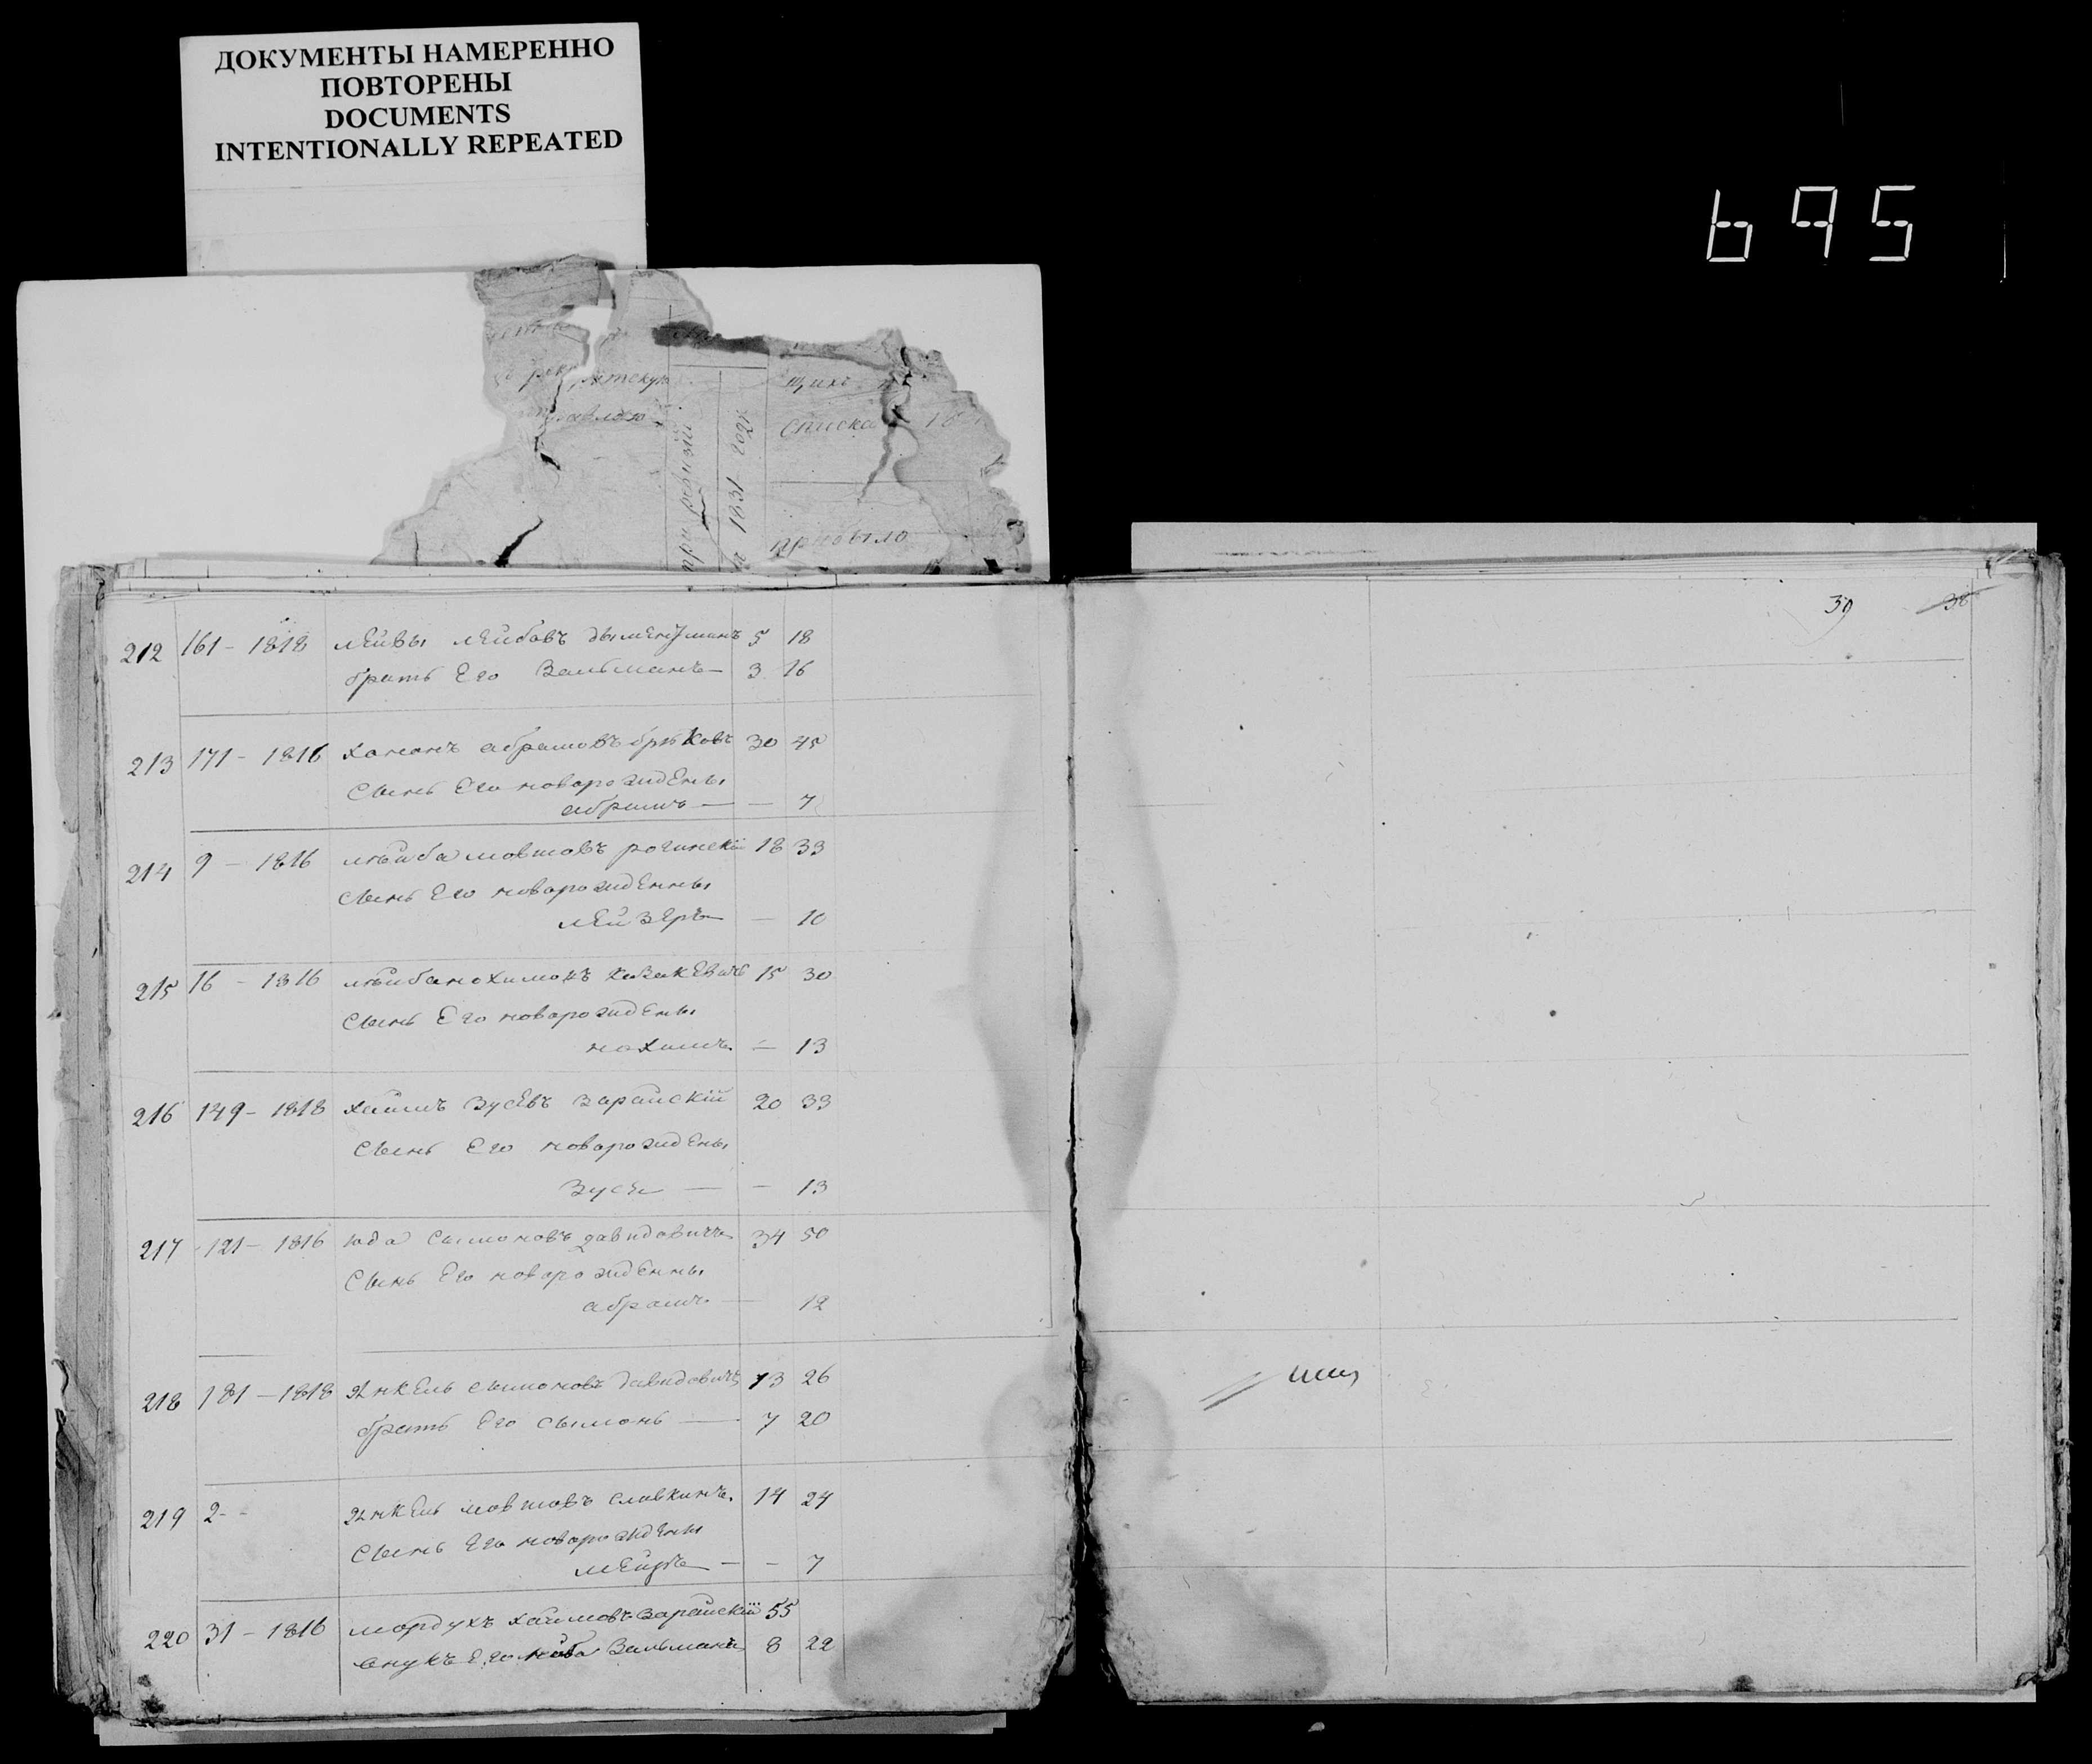 ДОКУМЕНТЫ НАМЕРЕННО
ПОВТОРЕНЫ
DOCUMENTS
INTENTIONALLY REPEATED
695
при ревизіи
1831 года
щихъ
списка 18
прибыло
39 38
212 161 - 1818 Лейбовъ 5 18
братъ Его Зальманъ 3 16
213 171 - 1816 Хаманъ абрамовъ 30 45
Сынъ Его новарождены
абрамъ — — 7
214 9 - 1816 лѣйба мовшовъ рогинскій 18 33
Сынъ Его новарожденны
лЕйзеръ — 10
215 16 - 1816 лѣйба нохимовъ хазакЕвичъ 15 30
Сынъ Его новарожденны
нохимъ — 13
216 149 - 1818 хаимъ Зусевъ Зарайскій 20 33
Сынъ Его новарожденны
Зусь — — 13
217 121 - 1816 юда Сымоновъ давидовичъ 34 50
Сынъ Его новарожденны
абрамъ — 12
218 181 - 1818 Янкель сымоновъ Давидовичъ 13 26
братъ Его сымонъ — 7 20
219 2 - - Янкель мовшовъ славкинъ 14 24
Сынъ Его новарожденны
— — 7
220 31 - 1816 мордухъ хаимовъ Зарайскій 55
внукъ Его Зальманъ 8 22